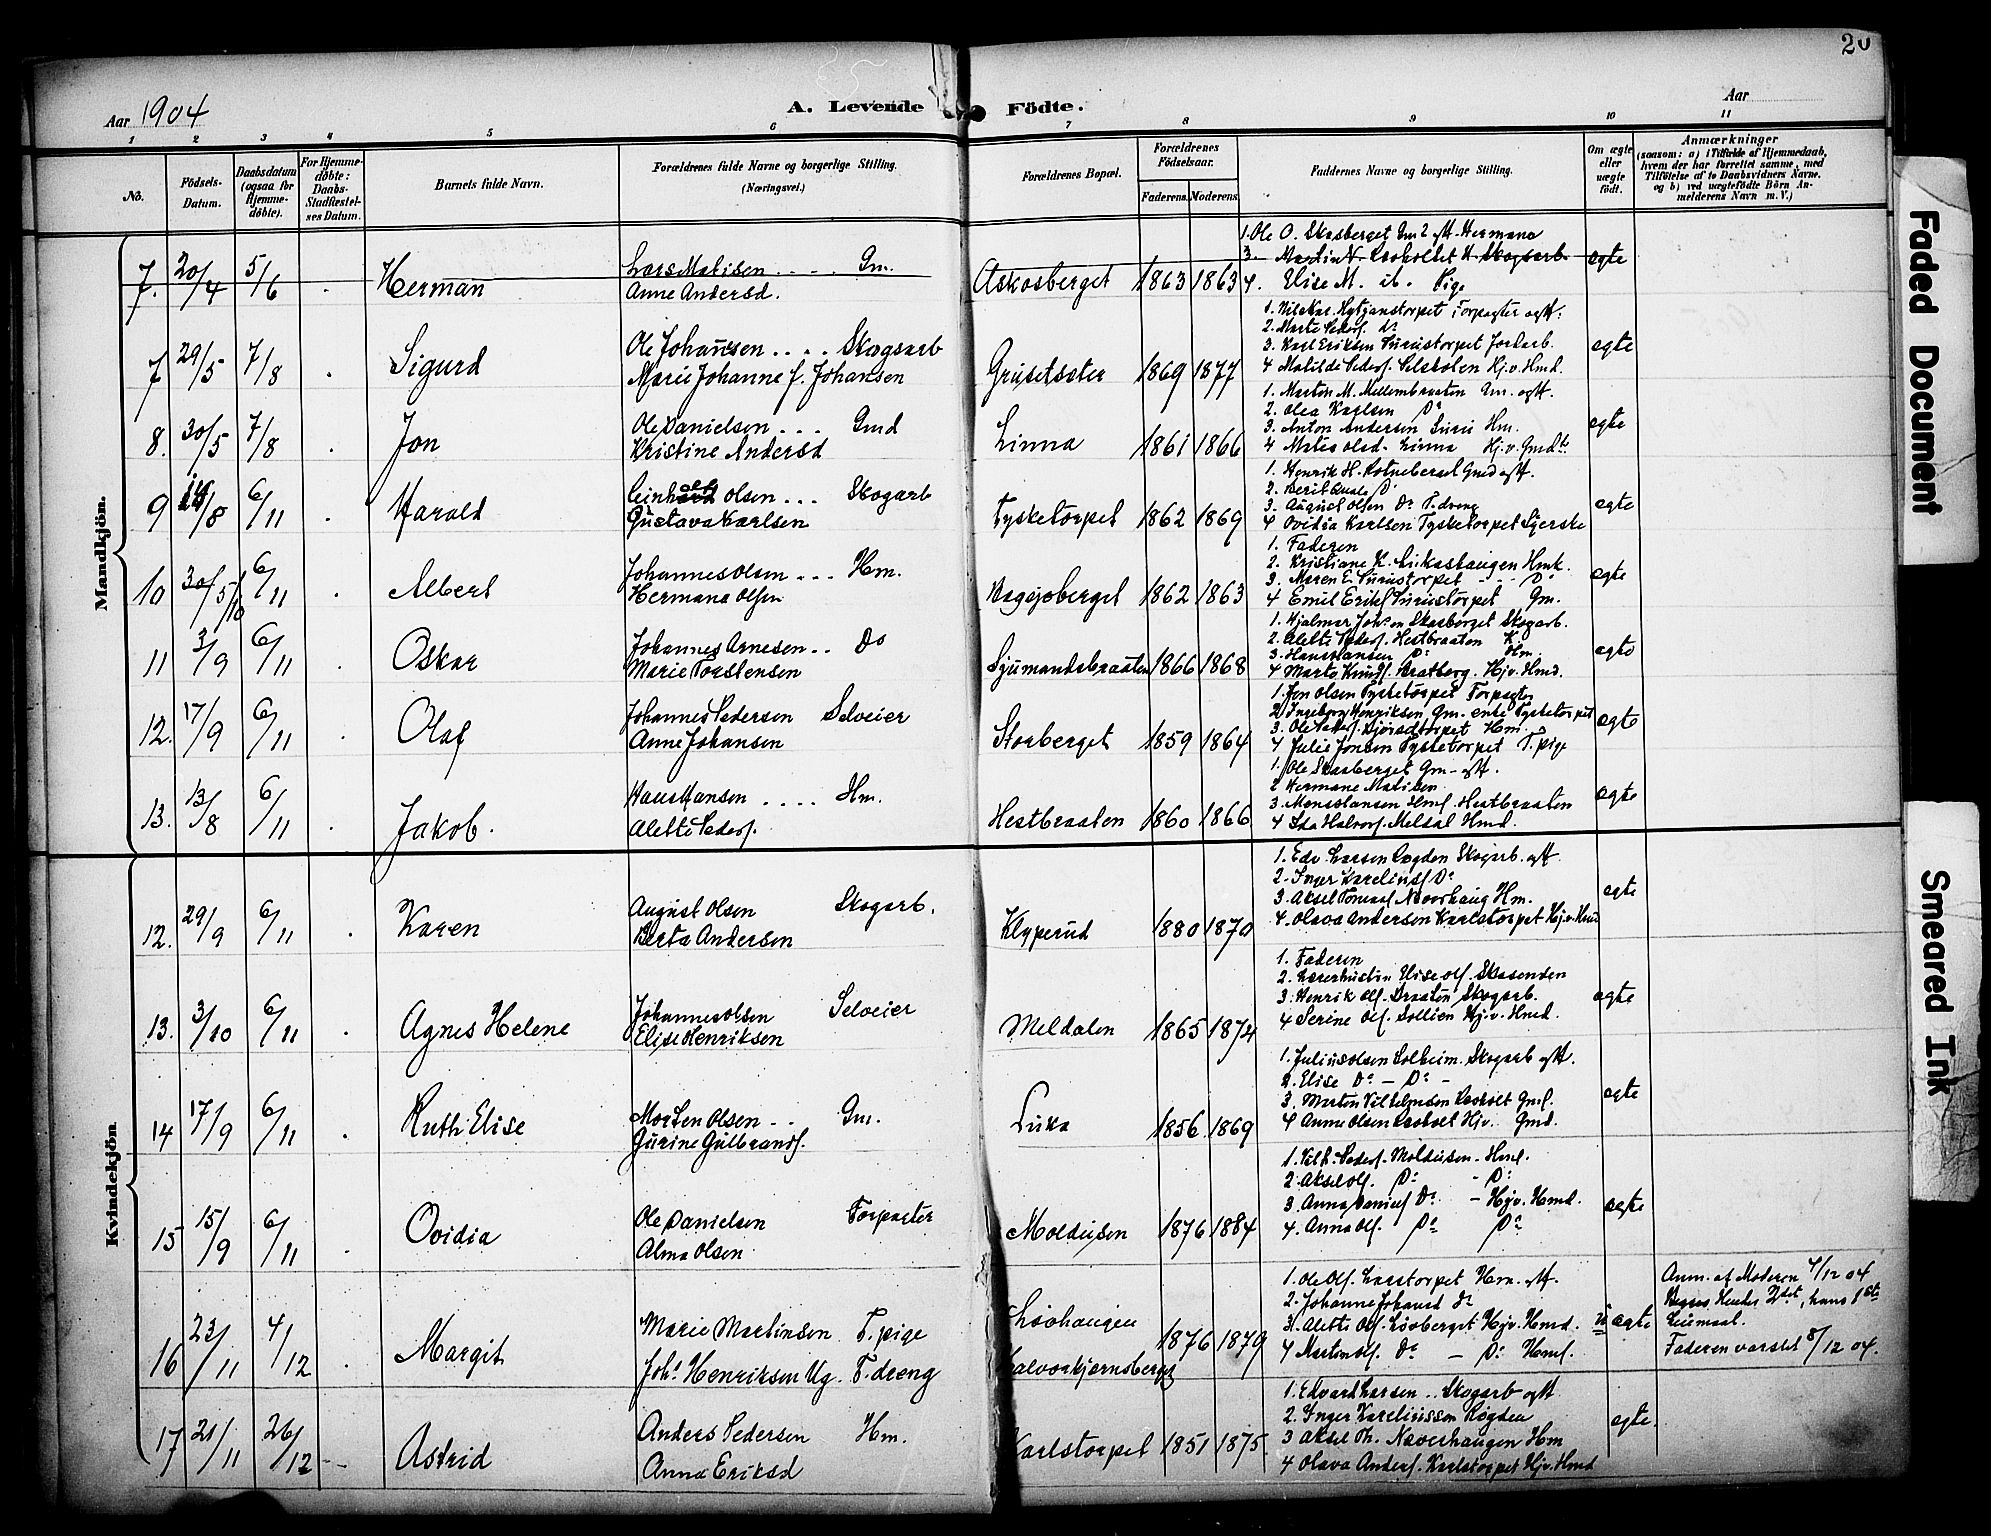 20
Aar 1904
A. Levende Födte.
Aar
1 2 3 4 5 6 7 8 9 10 11
No.
Födsels-Datum.
Daabsdatum (ogsaa for Hjemme-døbte).
For Hjemme-døbte: Daabs-Stadfæstel-ses Datum.
Barnets fulde Navn.
Forældrenes fulde Navne og borgerlige Stilling.
(Næringsvei.)
Forældrenes Bopæl.
Forældrenes Födselsaar.
Faderens. Moderens.
Faddernes Navne og borgerlige Stilling.
Om ægte eller uægte födt.
Anmærkninger
(saasom: a) i Tilfælde af Hjemmedaab,
hvem der har forrettet samme, med
Tilföielse af to Daabsvidners Navne.
og b) ved uægtefödte Börn An-
melderens Navn m. V.)
Mandkjön.
7. 20/4 5/6 Herman
Lars Matisen .... Gm.
Anne Andersd.
Askosberget 1863 1863
1. Ole O. Skasberget Gm 2 M. Hermana
4. Elise M. ib. Pige
ægte
7 29/5 7/8 Sigurd
Ole Johansen .... Skogsarb
Marie Johanne f. Johansen
Grusetsæter 1869 1877
2. Marte Peders. do
3. Karl Eriksen Surustorpet Jordarb.
4 Matilde Peders. Hj.v. Hmd.
ægte
8. 30/5 7/8 Jon
Ole Danielsen ... Gmd
Kristine Andersd
Linna 1861 1866
1. Morten M. Mellembraaten Gm. og H.
2. Olea Karlsen Do
3. Anton Andersen Suru Hm.
4 Mates Olsd. Linna Hj.v. Gmd
ægte
9 /8 6/11 Harald
Olsen ... Skogarb
Gustava Karlsen
Tysketorpet 1862 1869
3. August Olsen Do T. dreng
4 Ovidia Karlsen Tysketorpet
ægte
10 30/5/10 6/11 Albert
Johannes Olsen ... Hm.
Hermana Olsen
1862 1863
1. Faderen
2. Kristiane K. Hmk.
3. Maren E. Surustorpet - Do
4 Emil Eriks. Surustorpet Gm.
ægte
11 3/9 6/11 Oskar
Johannes Arnesen .. Do
Marie Torstensen
Sjumandsbraaten 1866 1868
1. Hjalmar Johsen Skasberget Skogarb.
2. Alette Peders. Hestbraaten K.
3. Hans Hansen Do Hm.
4 Marte Knuts. Hj.v. Hmd.
ægte
12. 17/9 6/11 Olaf
Johannes Pedersen Selveier
Anne Johansen
Storberget 1859 1864
1. Jon Olsen Tysketorpet Forpagter
2. Ingeborg Henriksen, Gm. enke Tysketorpet
4 Julie Jonsen Tysketorpet T. pige
ægte
13. 13/8 6/11 Jakob.
Hans Hansen .... Hm.
Alette Peders.
Hestbraaten 1860 1866
1. Ole Skasberget Gm - og H.
2 Hermane Matisen
3. Mons Hansen Hms. Hestbraaten
4 Ida Halvors. Meldal Hmd.
ægte
Kvindekjön.
12. 29/9 6/11 Karen
August Olsen Skogarb.
Berta Andersen
Klyperud 1880 1870
1. Edv. Larsen Røgden Skogarb. og H.
2. Inger Karelius. Do
3. Aksel Tomas. Næverhaug Hm.
4. Olava Andersen Karlstorpet Hj.v. Hmd
ægte
13. 3/10 6/11 Agnes Helene
Johannes Olsen Selveier
Elise Henriksen
Meldalen 1865 1874
1. Faderen
2. Lærerhustru Elise Ols. Skasenden
3. Henrik Ols. Braaten Skogarb.
4 Serine Ols. Sollien Hj.v. Hmd.
ægte
14 17/9 6/11 Ruth Elise
Morten Olsen .. Gm.
Gurine Gulbrands.
1856 1869
1. Julius Olsen Solheim. Skogarb og H.
2. Elise Do - Do -
3. Morten Vilhelmsen Raaholt Gms.
4 Anne Olsen Raaholt Hjv. Gmd.
ægte
15 15/9 6/11 Ovidia
Ole Danielsen Forpagter
Alma Olsen
Moldusen 1876 1884
1. Vilh. Peders. Moldusen - Hms.
2. Aksel Ols. Do - Do
3. Anna Daniels Do - Hjv. Hmd.
4. Anna Ols. Do Do
ægte
16 23/11 4/12 Margit
Marie Martinsen T. pige
Johs Henriksen Ug. T. dreng
Løvhaugen
1876 1879
1. Ole Ols. Laastorpet Hm. og H.
2. Johanne Johansd do
3. Alette Ols. Løvberget Hjv. Hmd.
4 Martin Ols. Do - Do Hms.
uægte
Anm. af Moderen 4/12 04
Begges Hendes 2det, hans 1ste
Leiemaal.
Faderen varslet 8/12 04.
17 21/11 26/12 Astrid
Anders Pedersen Hm.
Anna Eriksd
Karlstorpet 1851 1875
1. Edvard Larsen .. Skogarb og H
2. Inger Kareliussen Røgden
3 Aksel Th. Næverhaugen Hm
4 Olava Anders. Karlstorpet Hjv. Hmd
ægte.
Faded Document
Smeared Ink